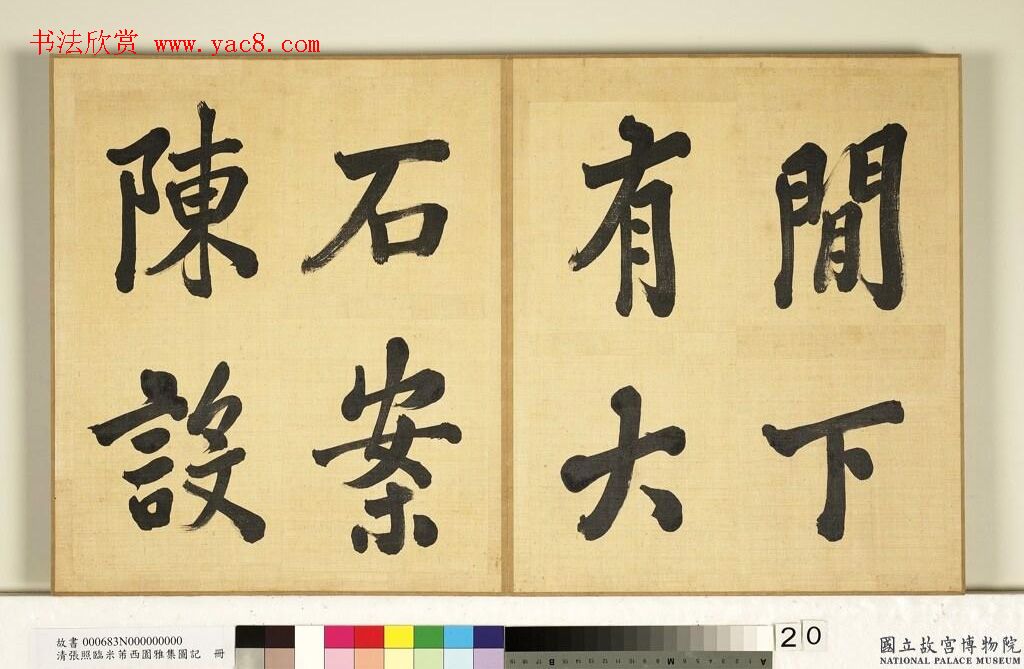 书法欣赏 www.yac8.com
間下
有大
石案
陳設
故書 000683N000000000
清張照臨米芾西園雅集圖記 冊
20
國立故宮博物院
NATIONAL PALACE MUSEUM